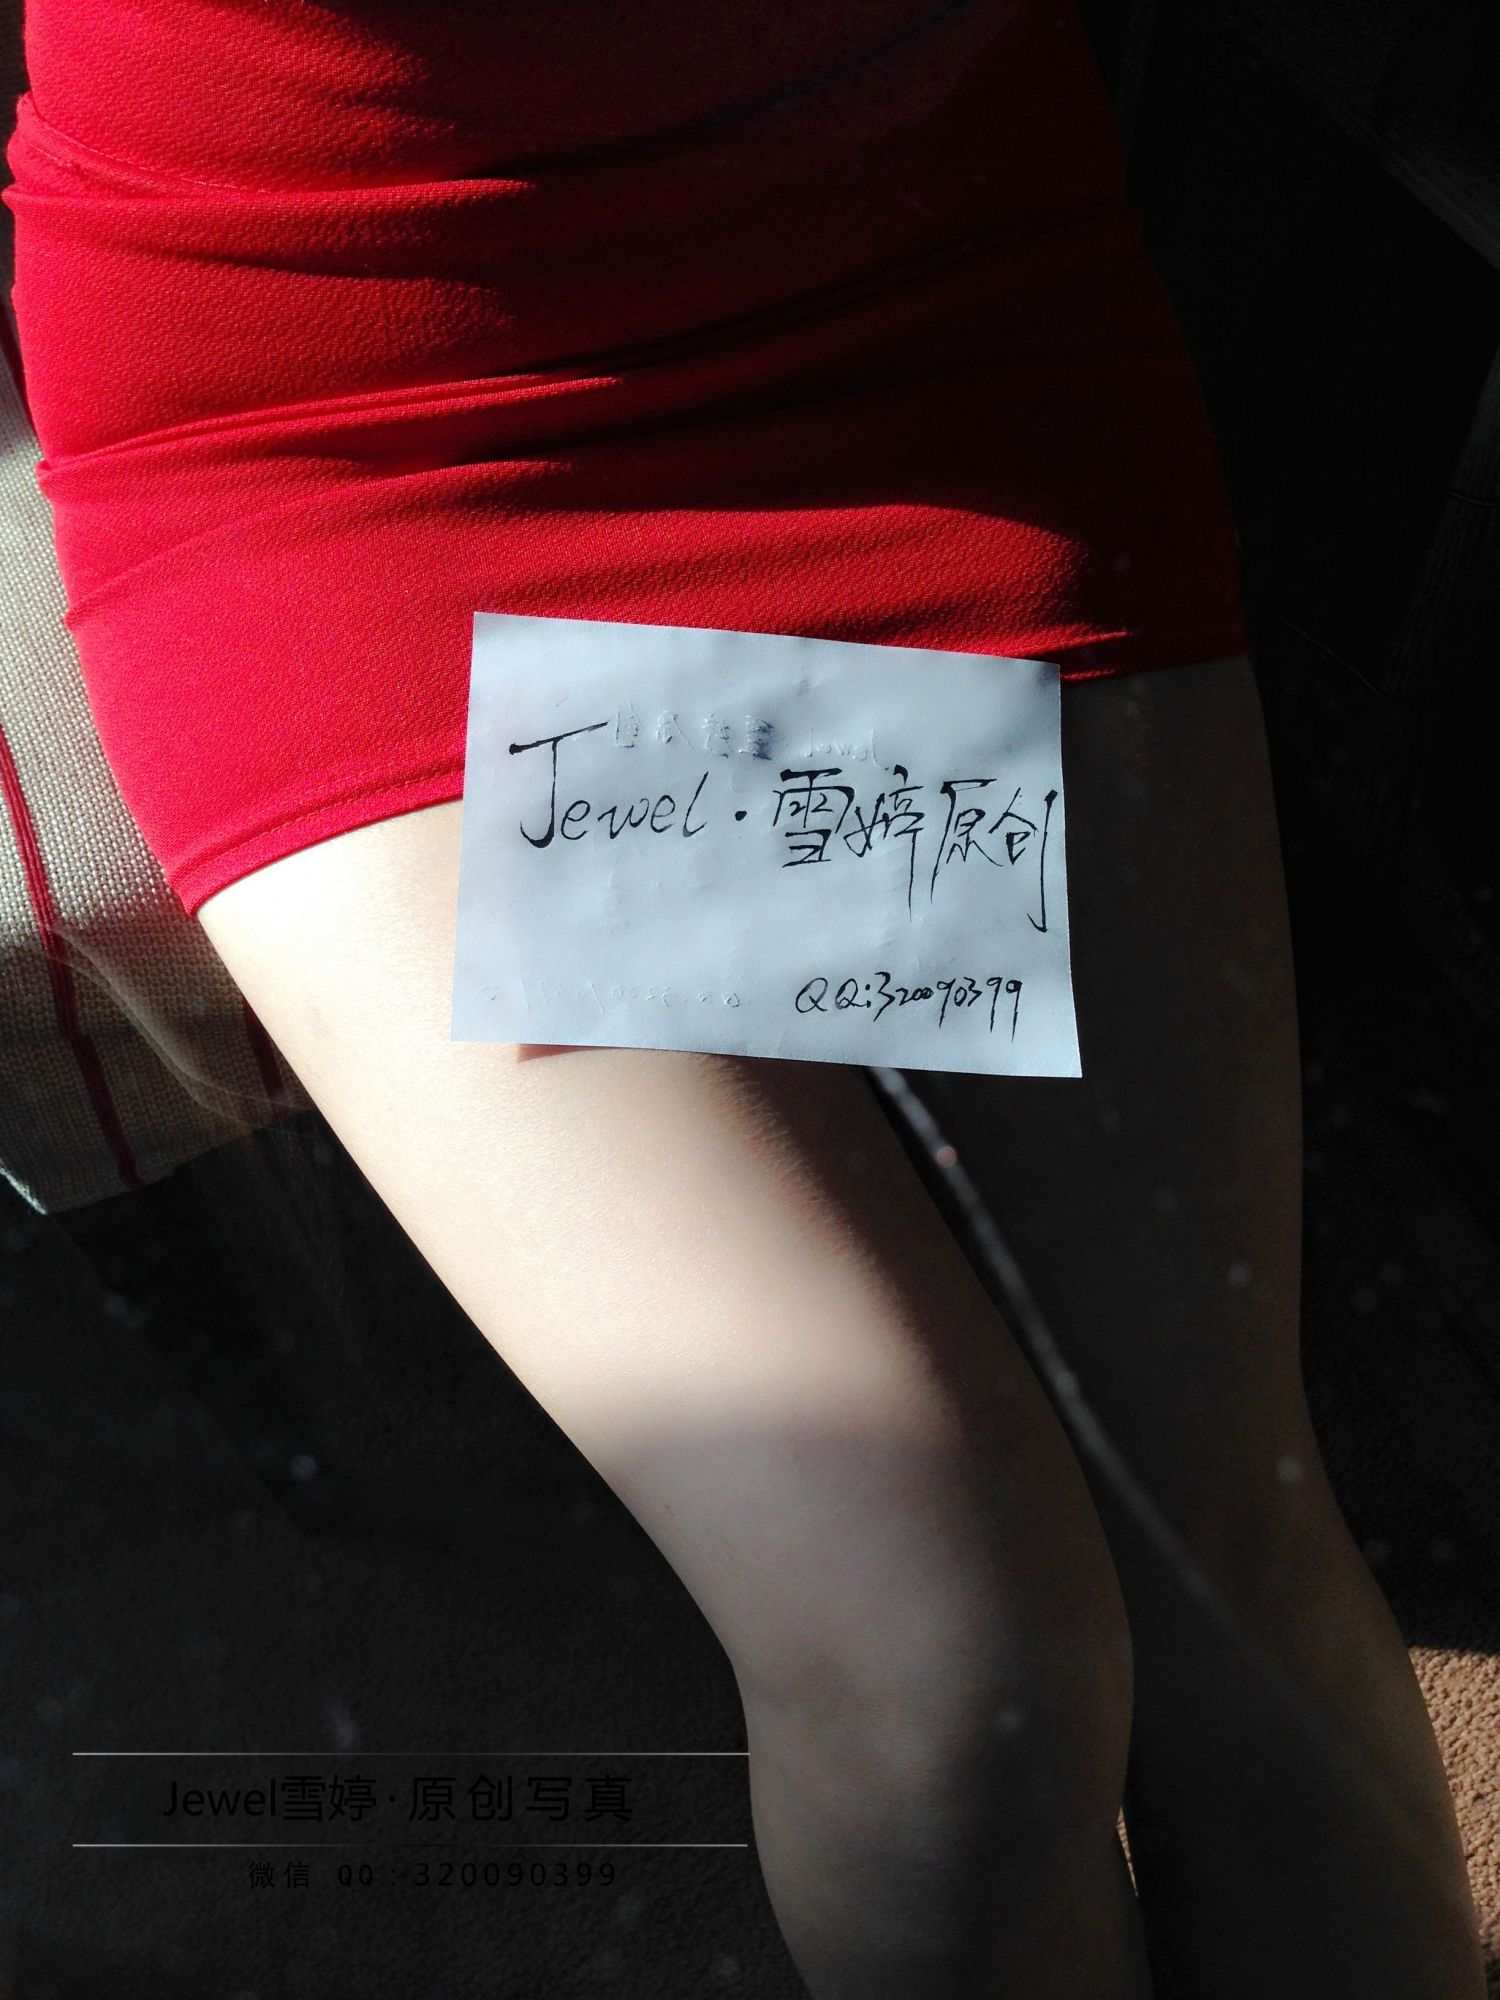 Jewel·雪婷原创
QQ:320090399
Jewel雪婷·原创写真
微信 QQ:320090399